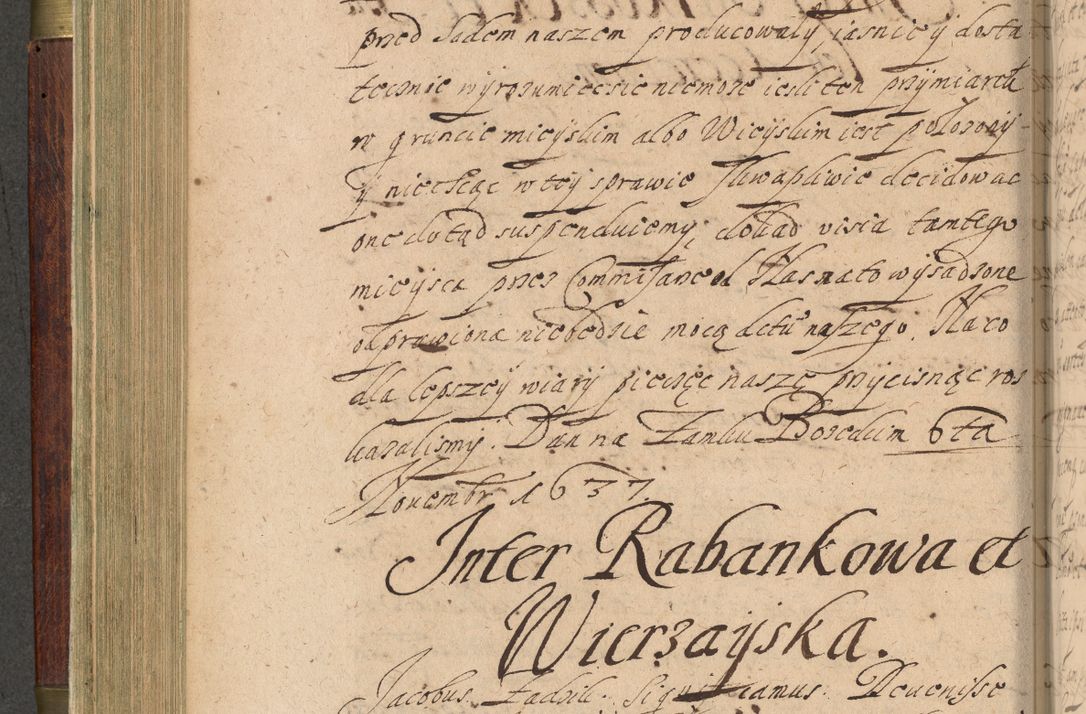 przed Sądem naszem producowały, jasnie y dosta
tecznie wyrozumiec sie niemoze iesli ten przymiarek
w gruncie mieyskim albo Wieyskim iest połozony
y niechcąc w tey sprawie skwapliwie decidowac
one dotąd suspenduiemy, dokąd visia tamtego
mieysca przez Commisarze od Nas na to wysadzone
odprawiona niebędzie mocą actu naszego. Na co
dla lepszey wiary pieczęc naszą przycisnąc ros
kazalismy. Dan na Zamku Bozędzim 6ta
Nouembr 1637.
Inter Rabankowa et
Wierzayska.
Jacobus Zadzik. Significamus. Deuenisse